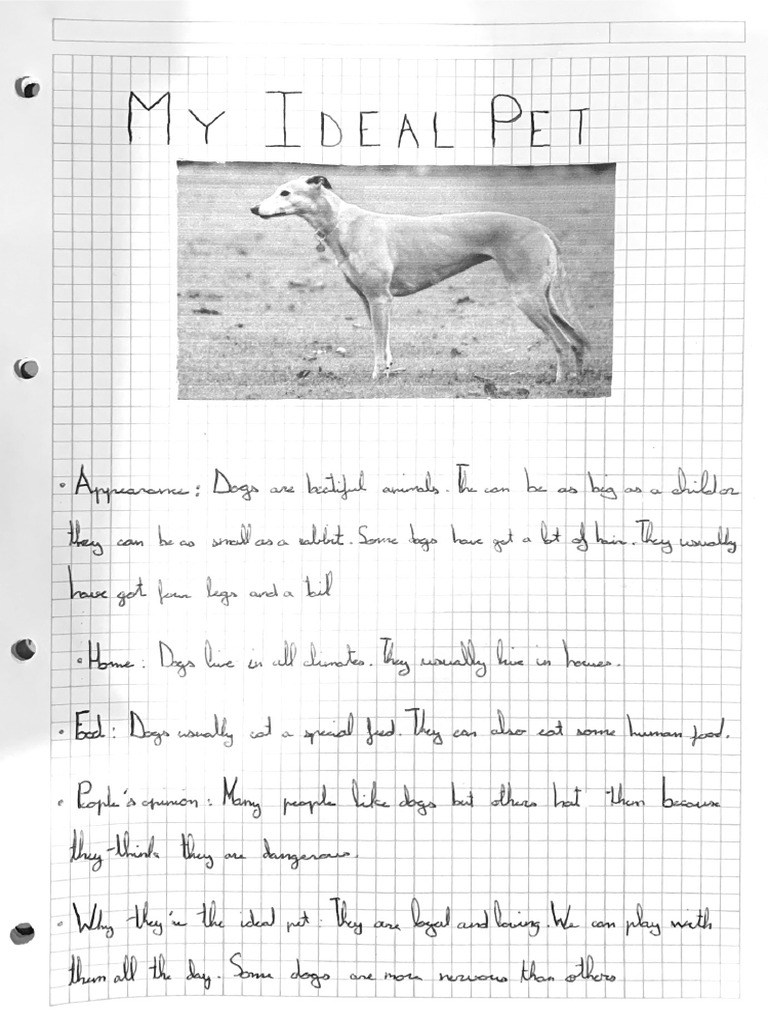 MY IDEAL PET
• Appearance: Dogs are beatiful animals. The can be as big as a child or
they can be as small as a rabbit. Some dogs have got a lot of hair. They usually
have got four legs and a tail
• Home: Dogs live in all climates. They usually live in houses.
• Food: Dogs usually eat a special food. They can also eat some human food.
• People's opinion: Many people like dogs but others hat them because
they think they are dangerous.
• Why they're the ideal pet: They are loyal and loving. We can play with
them all the day. Some dogs are more nervous than others